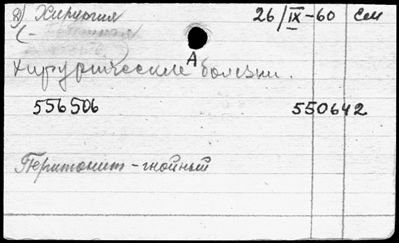 д) Хирургия 26/IX-60 Сем
(-
А
Хирургические болезни.
556506 550642
Перитонит - гнойный